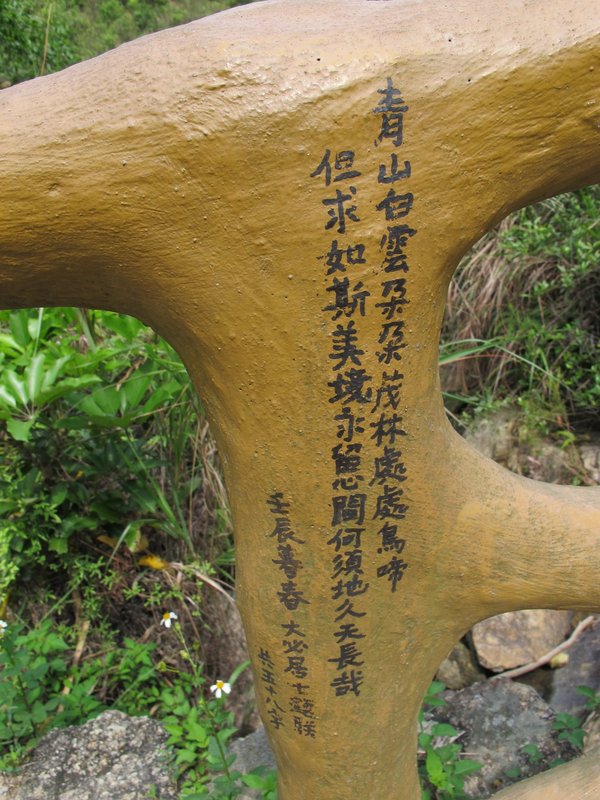 青山白雲朵朵茂林處處鳥啼
但求如斯美境永留心間何須地久天長哉
壬辰暮春
大必居士戲联
共五十八字